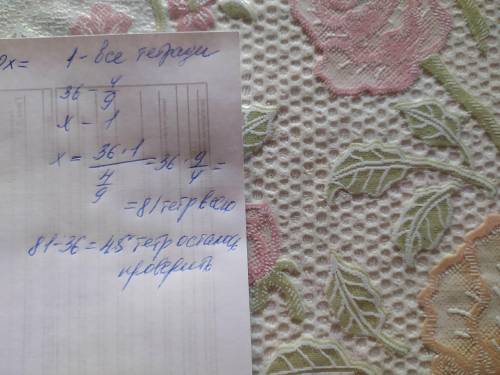 x = 1 - все тетради
36 - 4/9
x - 1
x = 36 · 1 / 4/9 = 36 · 9/4 =
= 81 тетр всего
81 - 36 = 45 тетр осталось
проверить